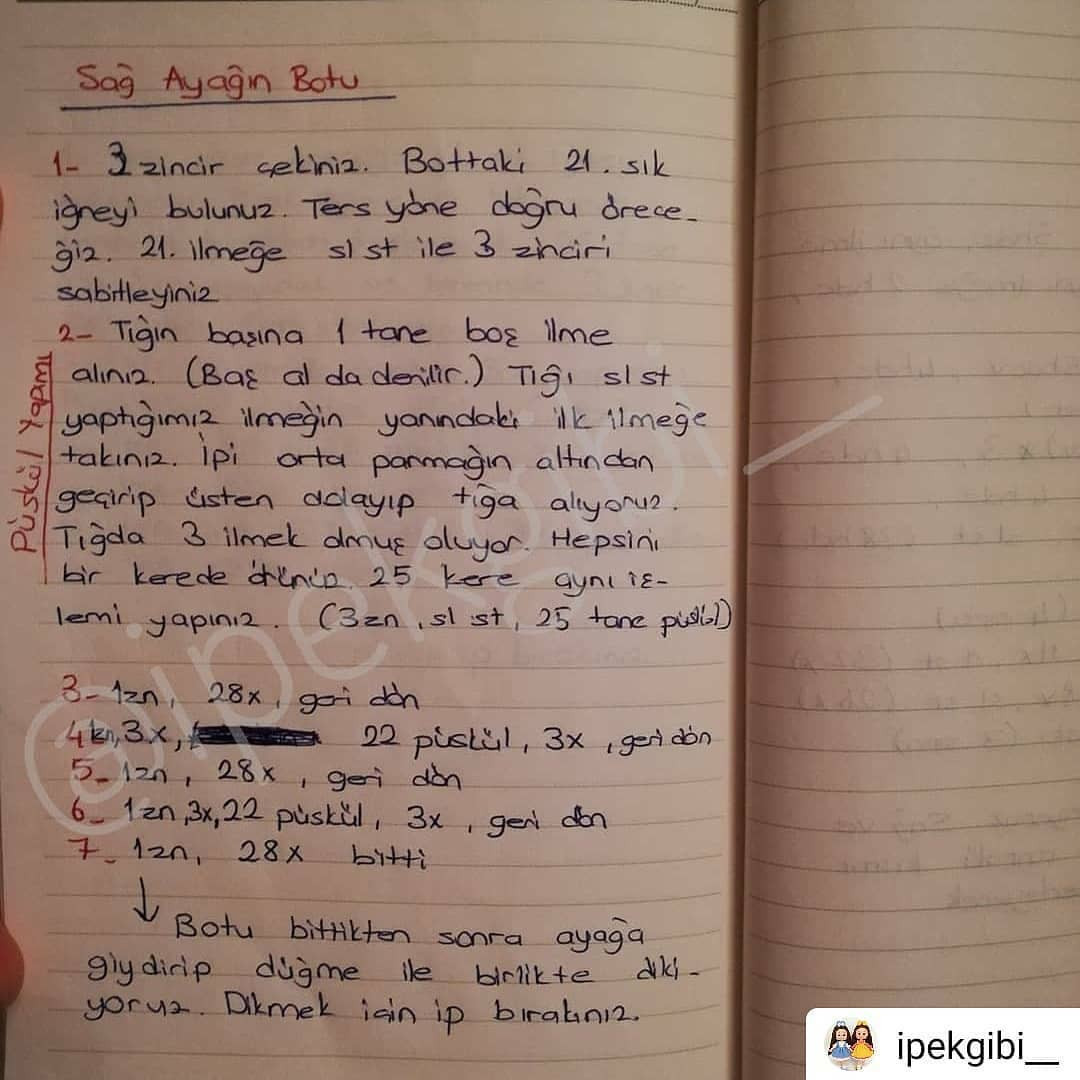 Sağ Ayağın Botu
1- 3 zincir çekiniz. Bottaki 21. sık
iğneyi bulunuz. Ters yöne doğru örece-
ğiz. 21. ilmeğe sl st ile 3 zinciri
sabitleyiniz
2- Tığın başına 1 tane boş ilme
alınız. (Baş al da denilir.) Tığı sl st
yaptığımız ilmeğin yanındaki ilk ilmeğe
takınız. İpi orta parmağın altından
geçirip üsten dolayıp tığa alıyoruz.
Tığda 3 ilmek olmuş oluyor. Hepsini
bir kerede 25 kere aynı iş-
lemi yapınız. (3zn, sl st, 25 tane püskül)
Püskül Yapımı
3- 1zn, 28x, geri dön
4 3x, 22 püskül, 3x, geri dön
5- 1zn, 28x, geri dön
6- 1zn,3x,22 püskül, 3x, geri dön
7- 1zn, 28x bitti
↓
Botu bittikten sonra ayağa
giydirip düğme ile birlikte diki-
yoruz. Dikmek için ip bırakınız.
@ipekgibi__
ipekgibi__